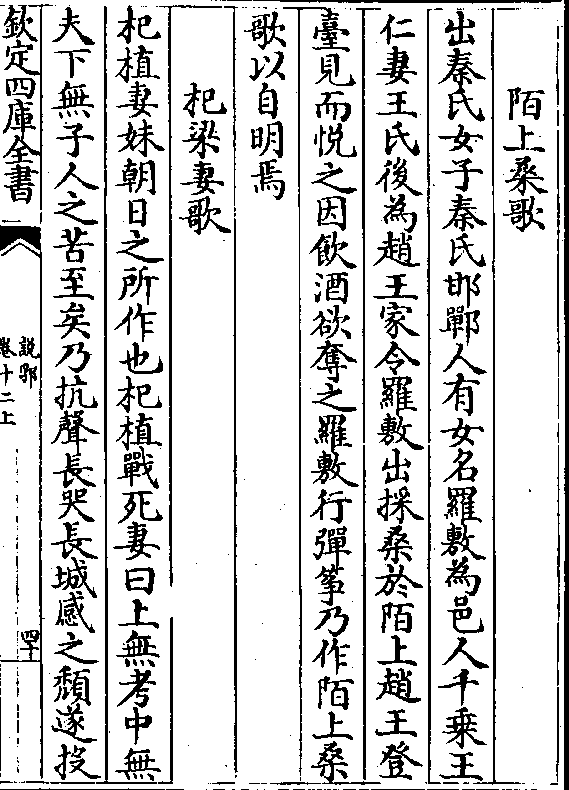 陌上桑歌
出秦氏女子秦氏邯鄲人有女名羅敷為邑人千乗王
仁妻王氏後為趙王家令羅敷出採桑於陌上趙王登
臺見而悅之因飲酒欲奪之羅敷行彈筝乃作陌上桑
歌以自明焉
杞梁妻歌
杞植妻妹朝日之所作也杞植戰死妻曰上無考中無
夫下無子人之苦至矣乃抗聲長哭長城感之頽遂投
欽定四庫全書
說郛
卷十二上
四十